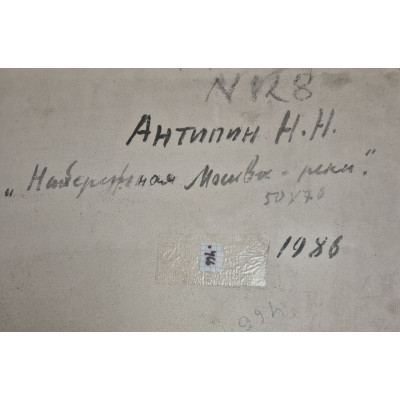 N 128
Антипин Н.Н.
"Набережная Москва-реки."
50х70
1986